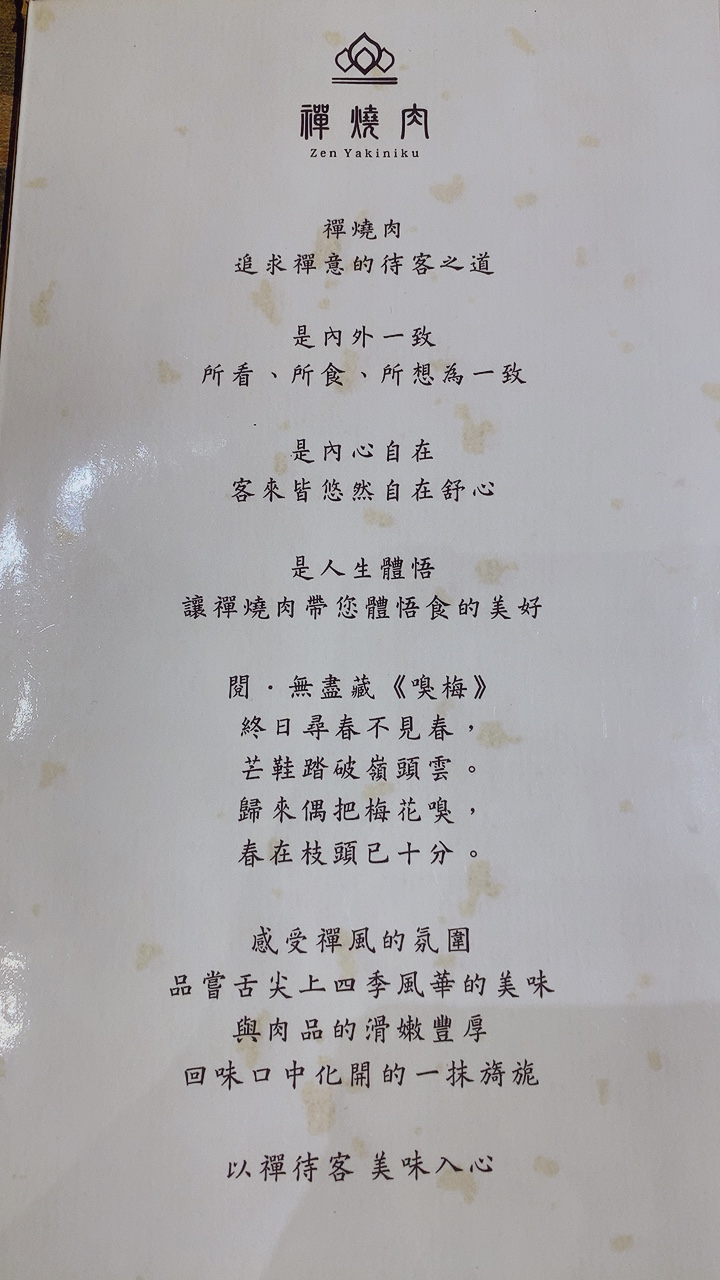 禪燒肉
Zen Yakiniku
禪燒肉
追求禪意的待客之道
是內外一致
所看、所食、所想為一致
是內心自在
客來皆悠然自在舒心
是人生體悟
讓禪燒肉帶您體悟食的美好
閱．無盡藏《嗅梅》
終日尋春不見春，
芒鞋踏破嶺頭雲。
歸來偶把梅花嗅，
春在枝頭已十分。
感受禪風的氛圍
品嘗舌尖上四季風華的美味
與肉品的滑嫩豐厚
回味口中化開的一抹旖旎
以禪待客 美味入心